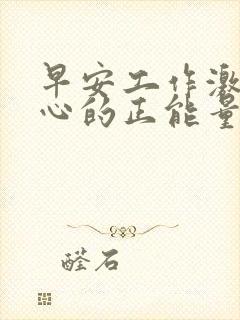 早安工作激
心的正能量
醛石